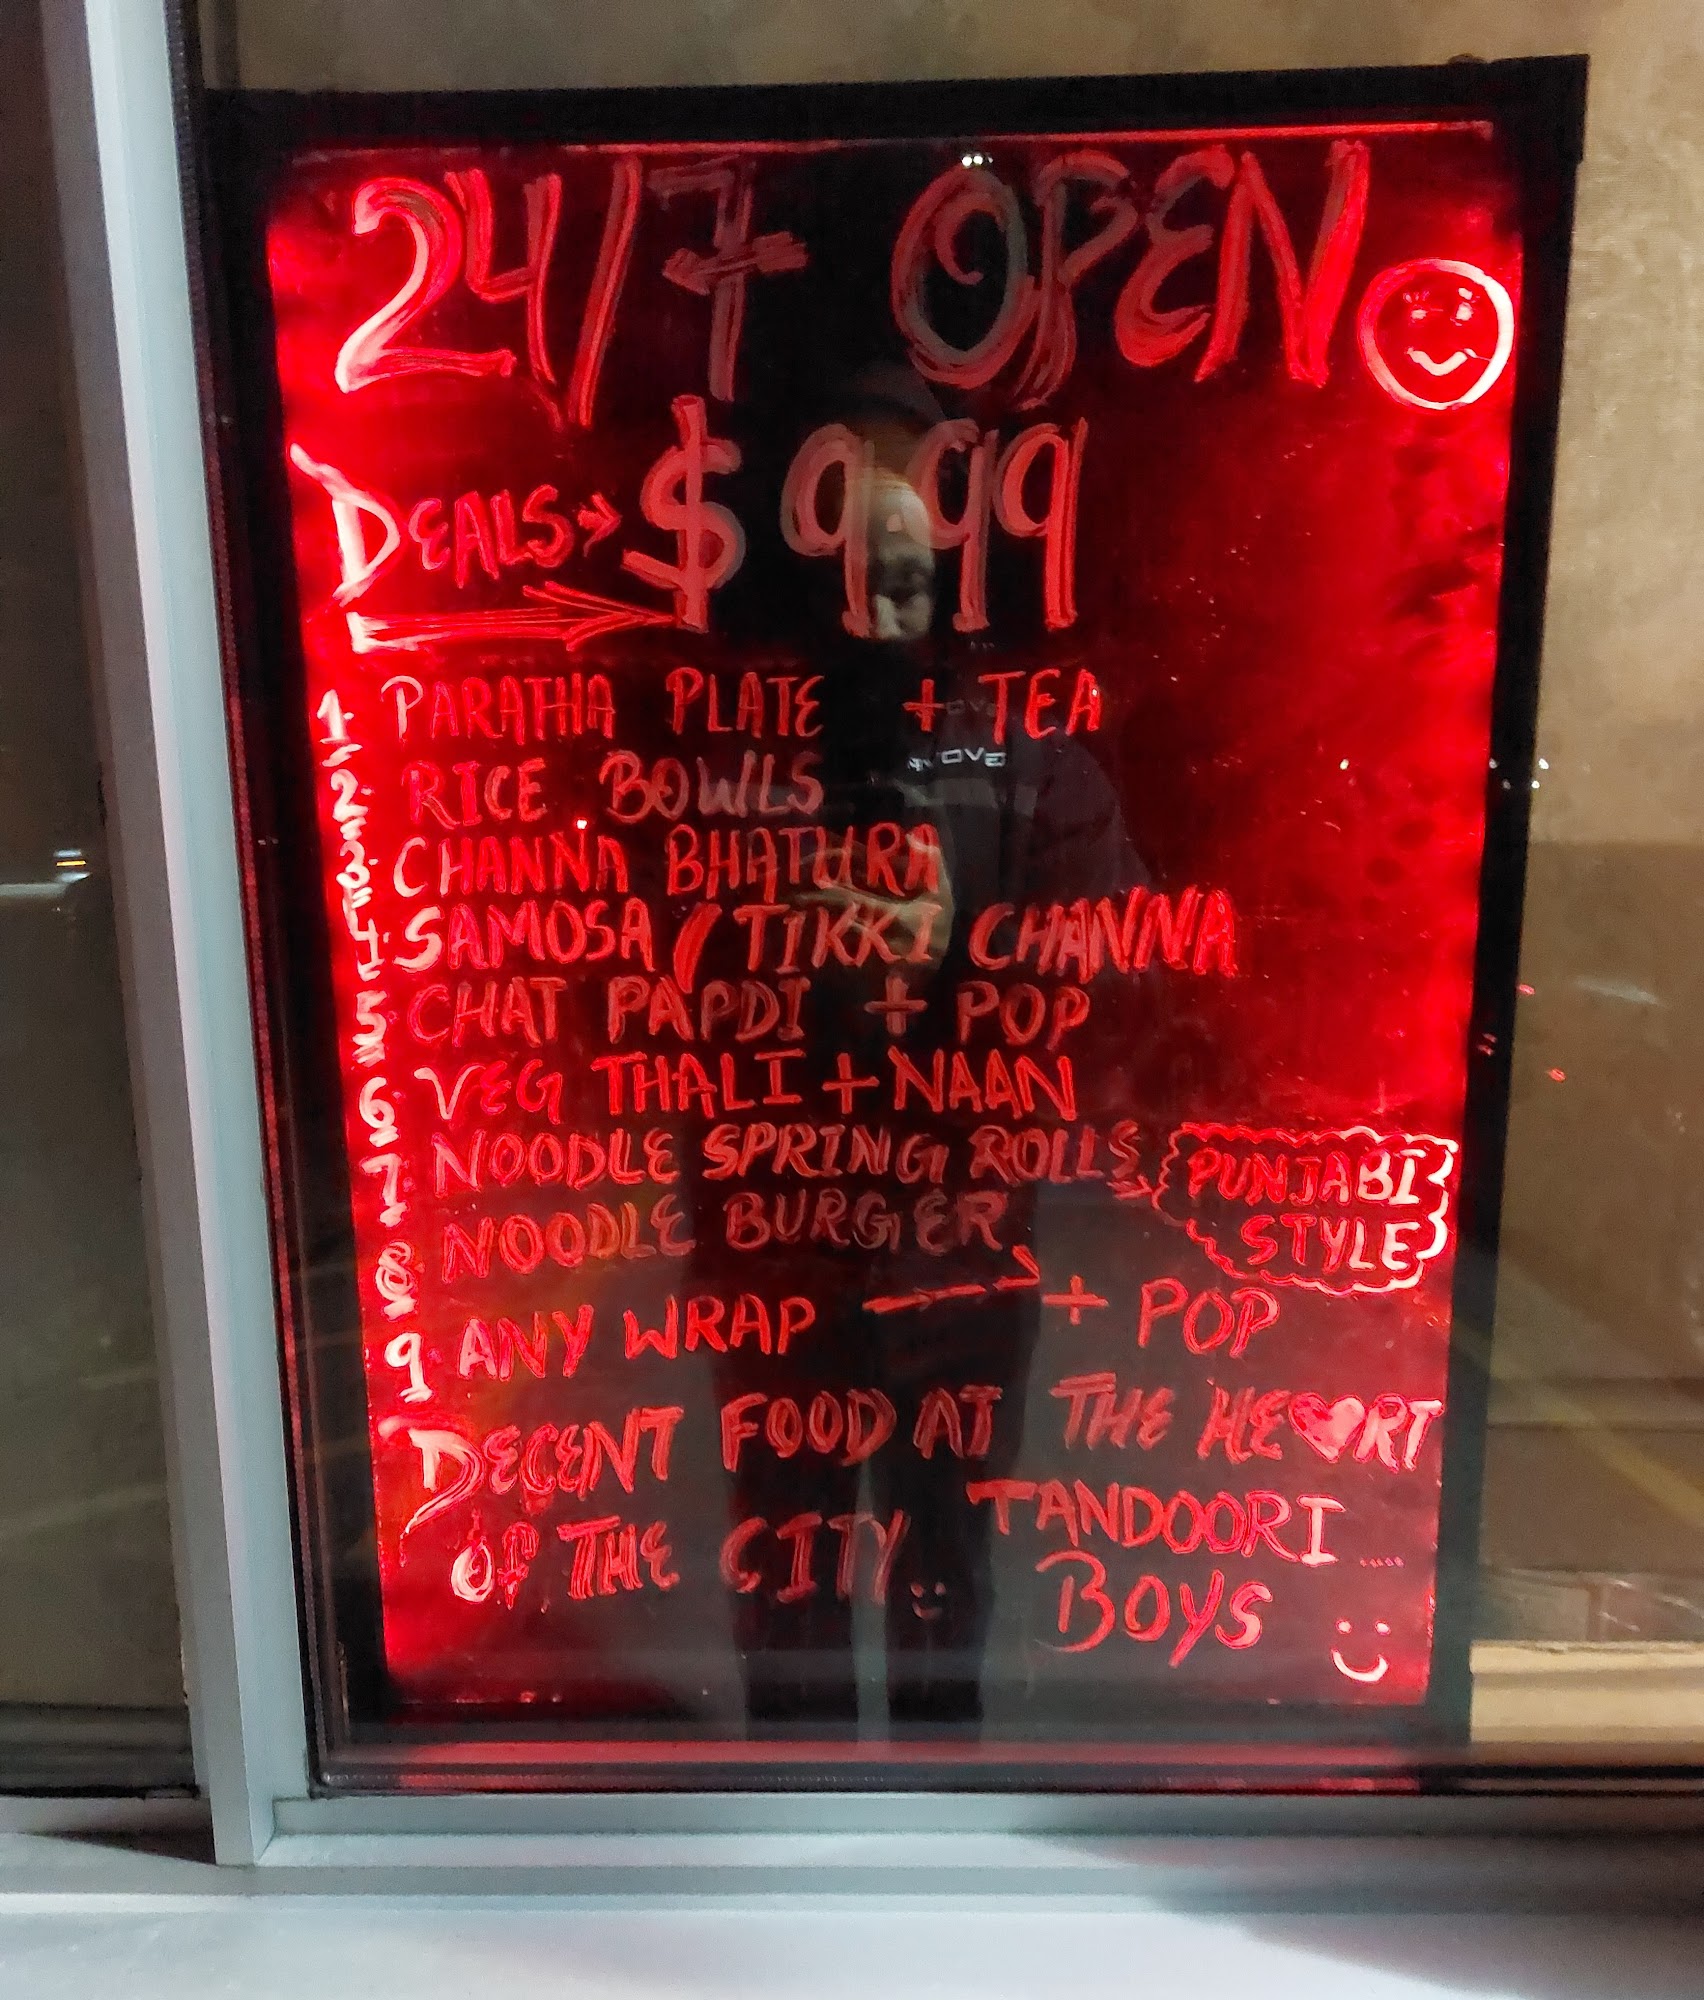 24/7 OPEN
DEALS → $9.99
1. PARATHA PLATE + TEA
2. RICE BOWLS
3. CHANNA BHATURA
4. SAMOSA / TIKKI CHANNA
5. CHAT PAPDI + POP
6. VEG THALI + NAAN
7. NOODLE SPRING ROLLS → PUNJABI STYLE
8 NOODLE BURGER
9 ANY WRAP → + POP
DECENT FOOD AT THE HE♥RT
OF THE CITY
TANDOORI ....
BOYS